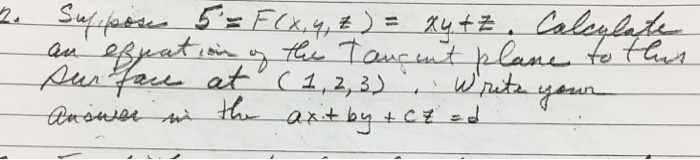 2. Suppose 5 = F(x,y,z) = xy+z. Calculate
an equation of the Tangent plane to this
surface at (1,2,3). Write your
answer in the ax+by+cz=d